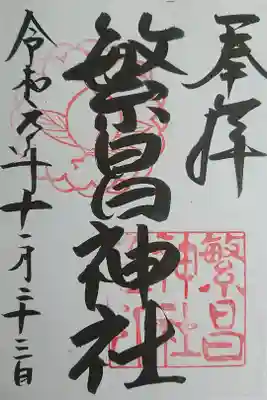 奉拝
繁昌神社
繁昌
神社
令和六年十二月二十二日